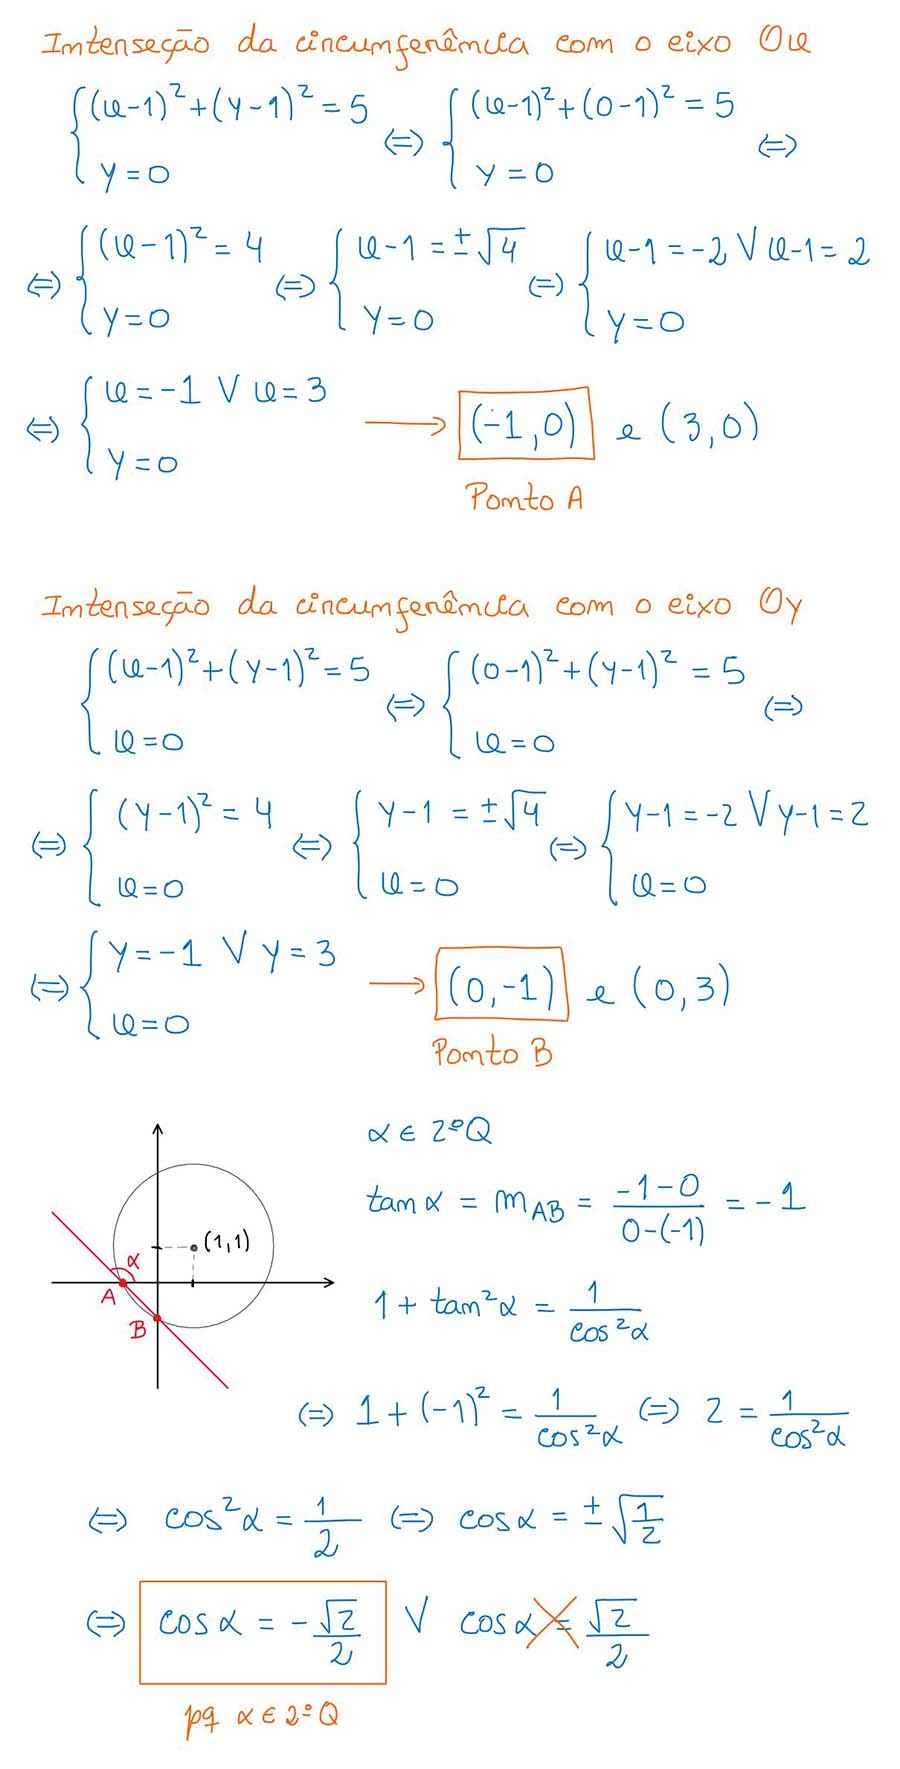 Interseção da circunferência com o eixo Ox
{ (x-1)² + (y-1)² = 5 ; y = 0 ⇔ { (x-1)² + (0-1)² = 5 ; y = 0 ⇔
⇔ { (x-1)² = 4 ; y = 0 ⇔ { x-1 = ±√4 ; y = 0 ⇔ { x-1 = -2 ∨ x-1 = 2 ; y = 0
⇔ { x = -1 ∨ x = 3 ; y = 0 → (-1,0) e (3,0)
Ponto A
Interseção da circunferência com o eixo Oy
{ (x-1)² + (y-1)² = 5 ; x = 0 ⇔ { (0-1)² + (y-1)² = 5 ; x = 0 ⇔
⇔ { (y-1)² = 4 ; x = 0 ⇔ { y-1 = ±√4 ; x = 0 ⇔ { y-1 = -2 ∨ y-1 = 2 ; x = 0
⇔ { y = -1 ∨ y = 3 ; x = 0 → (0,-1) e (0,3)
Ponto B
(1,1)
α
A
B
α ∈ 2ºQ
tan α = m_AB = (-1-0)/(0-(-1)) = -1
1 + tan²α = 1/cos²α
⇔ 1 + (-1)² = 1/cos²α ⇔ 2 = 1/cos²α
⇔ cos²α = 1/2 ⇔ cos α = ±√(1/2)
⇔ cos α = -√2/2 ∨ cos α = √2/2
pq α ∈ 2ºQ